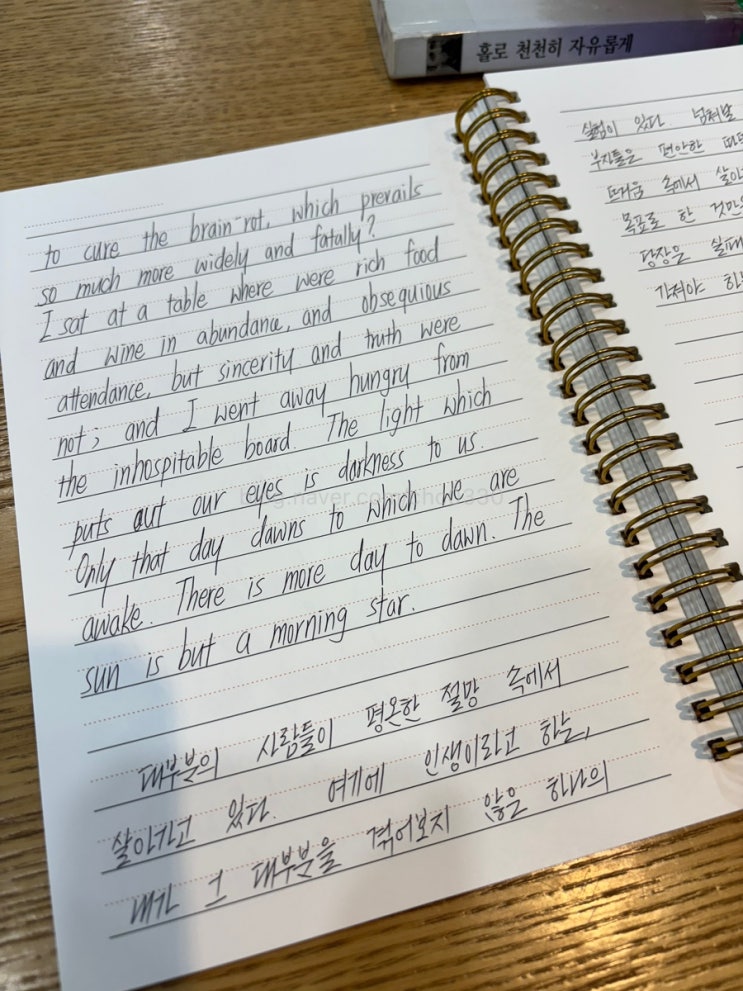 홀로 천천히 자유롭게
to cure the brain-rot, which prevails
so much more widely and fatally?
I sat at a table where were rich food
and wine in abundance, and obsequious
attendance, but sincerity and truth were
not; and I went away hungry from
the inhospitable board. The light which
puts out our eyes is darkness to us.
Only that day dawns to which we are
awake. There is more day to dawn. The
sun is but a morning star.
대부분의 사람들이 평온한 절망 속에서
살아가고 있다. 여기에 인생이라고 하는,
내가 그 대부분을 겪어보지 않은 하나의
실험이 있다
부자들은 편안한
뜨거움 속에서
목표로 한
당장은
가져야